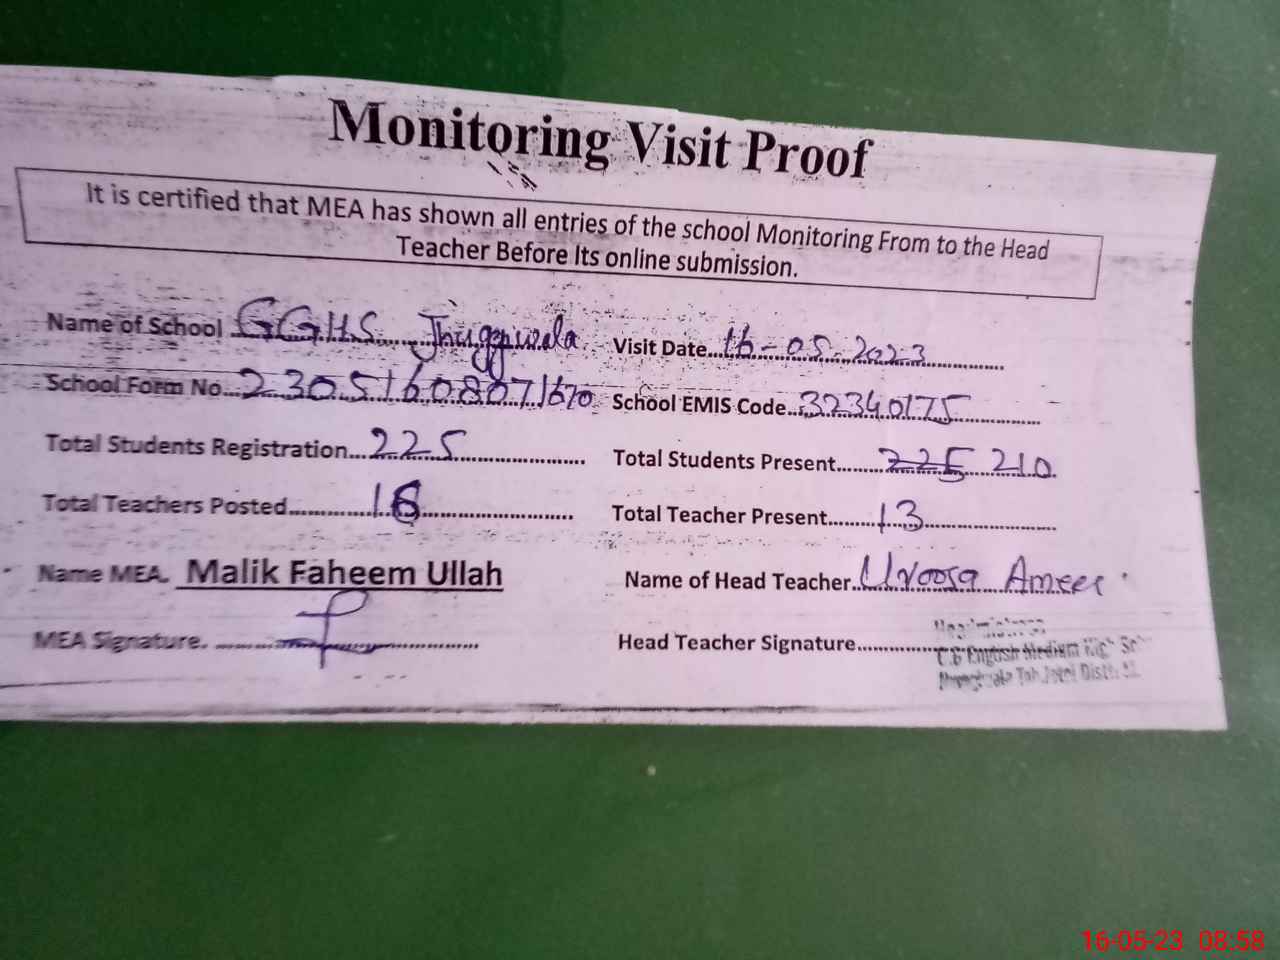 Monitoring Visit Proof
It is certified that MEA has shown all entries of the school Monitoring From to the Head
Teacher Before Its online submission.
Name of School GGHS Jhuggiwala Visit Date 16-05-2023
School Form No 230516080071670 School EMIS Code 32340175
Total Students Registration 225 Total Students Present 225 210
Total Teachers Posted 16 Total Teacher Present 13
Name MEA. Malik Faheem Ullah Name of Head Teacher Uroosa Ameer
MEA Signature. Head Teacher Signature
English Medium High
Jatoi Distt
16-05-23 08:58